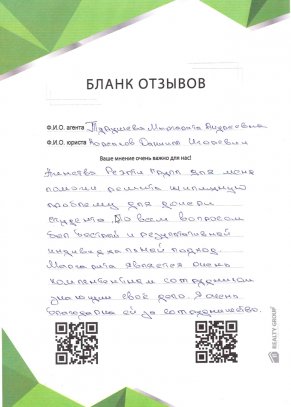 БЛАНК ОТЗЫВОВ
Ф.И.О. агента Маргарита
Ф.И.О. юриста Даниил Игоревич
Ваше мнение очень важно для нас!
Агентство Реэлти Групп для меня
помогли решить жилищную
проблему для дочери
студента. По всем вопросам
был быстрый и результативный
индивидуальный подход.
Маргарита является очень
компетентным сотрудником
знающим своё дело. Я очень
благодарна ей за сотрудничество.
REALTY GROUP